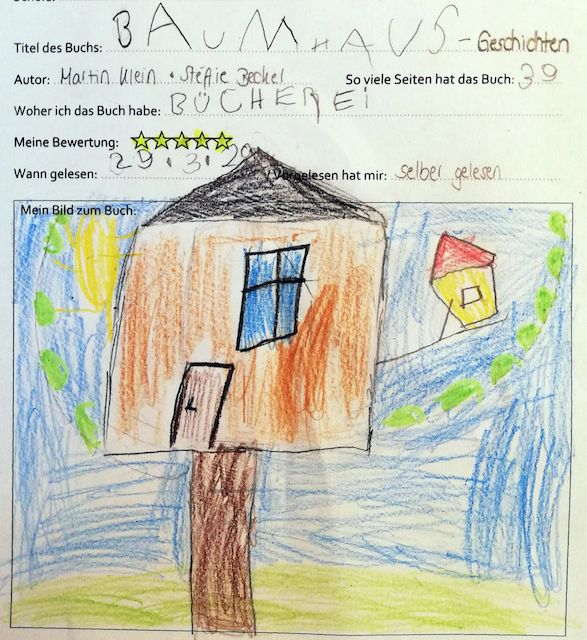 Titel des Buchs: BAUMHAUS-Geschichten
Autor: Martin Klein · Steffie Becker So viele Seiten hat das Buch: 39
Woher ich das Buch habe: BÜCHEREI
Meine Bewertung:
Wann gelesen: 29.3.20 Vorgelesen hat mir: selber gelesen
Mein Bild zum Buch: